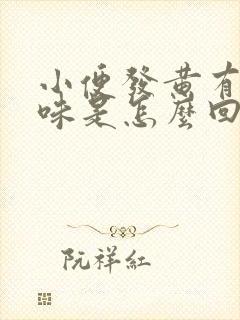 小便發黄有
味是怎麼回
阮祥紅